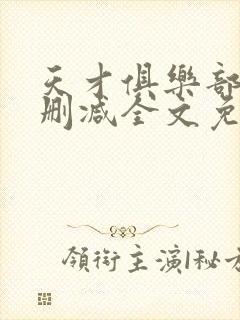 天才俱樂部
删减全文免
領銜主演|秘方